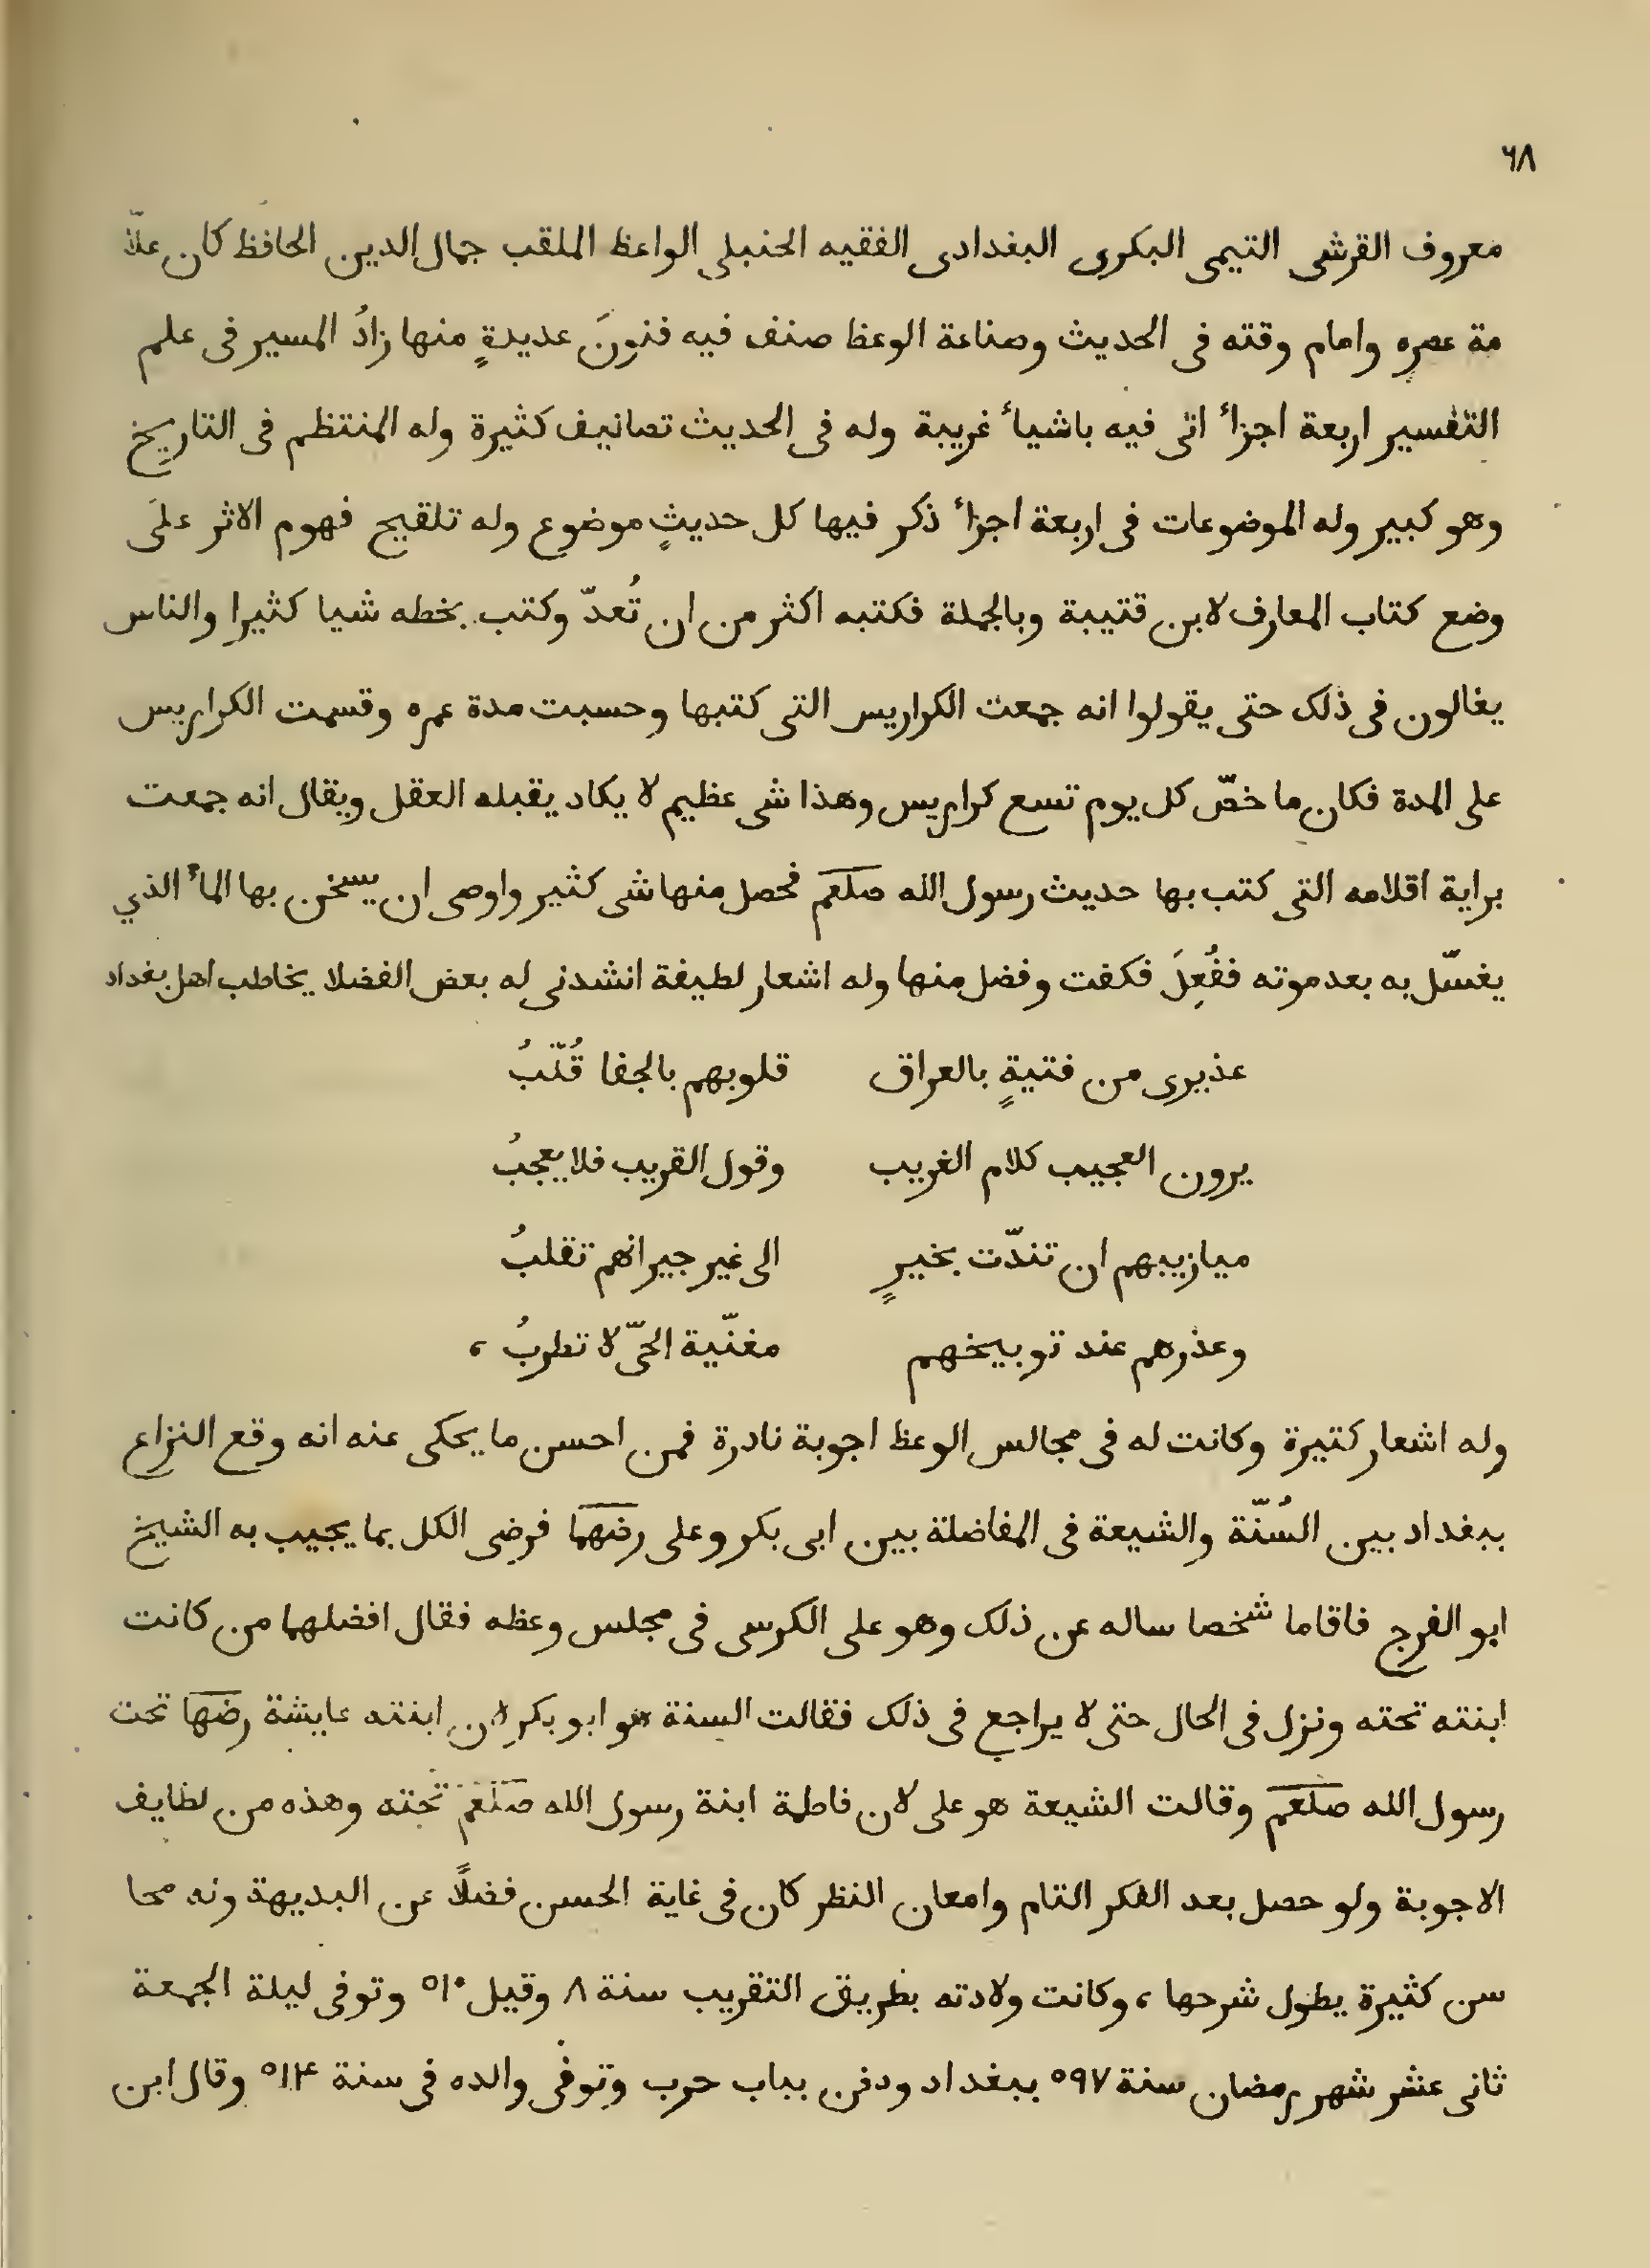 ٦٨
معروف القرشى التيمى البكرى البغدادى الفقيه الحنبلى الواعظ الملقب جمال الدين الحافظ كان علّا
مة عصره وامام وقته فى الحديث وصناعة الوعظ صنف فيه فنونَ عديدةٍ منها زادُ المسير فى علم
التفسير اربعة اجزاﺀ اتى فيه باشياﺀ غريبة وله فى الحديث تصانيف كثيرة وله المنتظم فى التاريخ
وهو كبير وله الموضوعات فى اربعة اجزاﺀ ذكر فيها كل حديثٍ موضوع وله تلقيح فهوم الاثر علىَ
وضع كتاب المعارف لابن قتيبة وبالجملة فكتبه اكثر من ان تُعدّ وكتب بخطه شيا كثيرا والناس
يغالون فى ذلك حتى يقولوا انه جمعت الكراريس التى كتبها وحسبت مدة عمره وقسمت الكراريس
على المدة فكان ما خصّ كل يوم تسع كراريس وهذا شى عظيم لا يكاد يقبله العقل ويقال انه جمعت
براية اقلامه التى كتب بها حديث رسول الله صلعم فحصل منها شى كثير واوصى ان يسخن بها الماﺀ الذي
يغسّل به بعد موته ففُعِلَ فكفت وفضل منها وله اشعار لطيفة انشدنى له بعض الفضلا يخاطب اهل بغداد
عذيرى من فتيةٍ بالعراق قلوبهم بالجفا قُلّبُ
يرون العجيب كلام الغريب وقول القريب فلا يعجبُ
ميازيبهم ان تندّت بخيرٍ الى غير جيرانهم تقلبُ
وعذرهم عند توبيخهم مغنّية الحىّ لا تطربُ ،
وله اشعار كتيرة وكانت له فى مجالس الوعظ اجوبة نادرة فمن احسن ما يحكى عنه انه وقع النزاع
ببغداد بين السُنّة والشيعة فى المفاضلة بين ابى بكر وعلى رضهما فرضى الكل بما يجيب به الشيخ
ابو الفرج فاقاما شخصا ساله عن ذلك وهو على الكرسى فى مجلس وعظه فقال افضلهما من كانت
ابنته تحته ونزل فى الحال حتى لا يراجع فى ذلك فقالت السنة هو ابو بكر لان ابنته عايشة رضها تحت
رسول الله صلعم وقالت الشيعة هو على لان فاطمة ابنة رسول الله صلعم تحته وهذه من لطايف
الاجوبة ولو حصل بعد الفكر التام وامعان النظر كان فى غاية الحسن فضلًا عن البديهة وله محا
سن كثيرة يطول شرحها ، وكانت ولادته بطريق التقريب سنة ٨ وقيل ٥١٠ وتوفى ليلة الجمعة
ثانى عشر شهر رمضان سنة ٥٩٧ ببغداد ودفن بباب حرب وتوفى والده فى سنة ٥١٤ وقال ابن